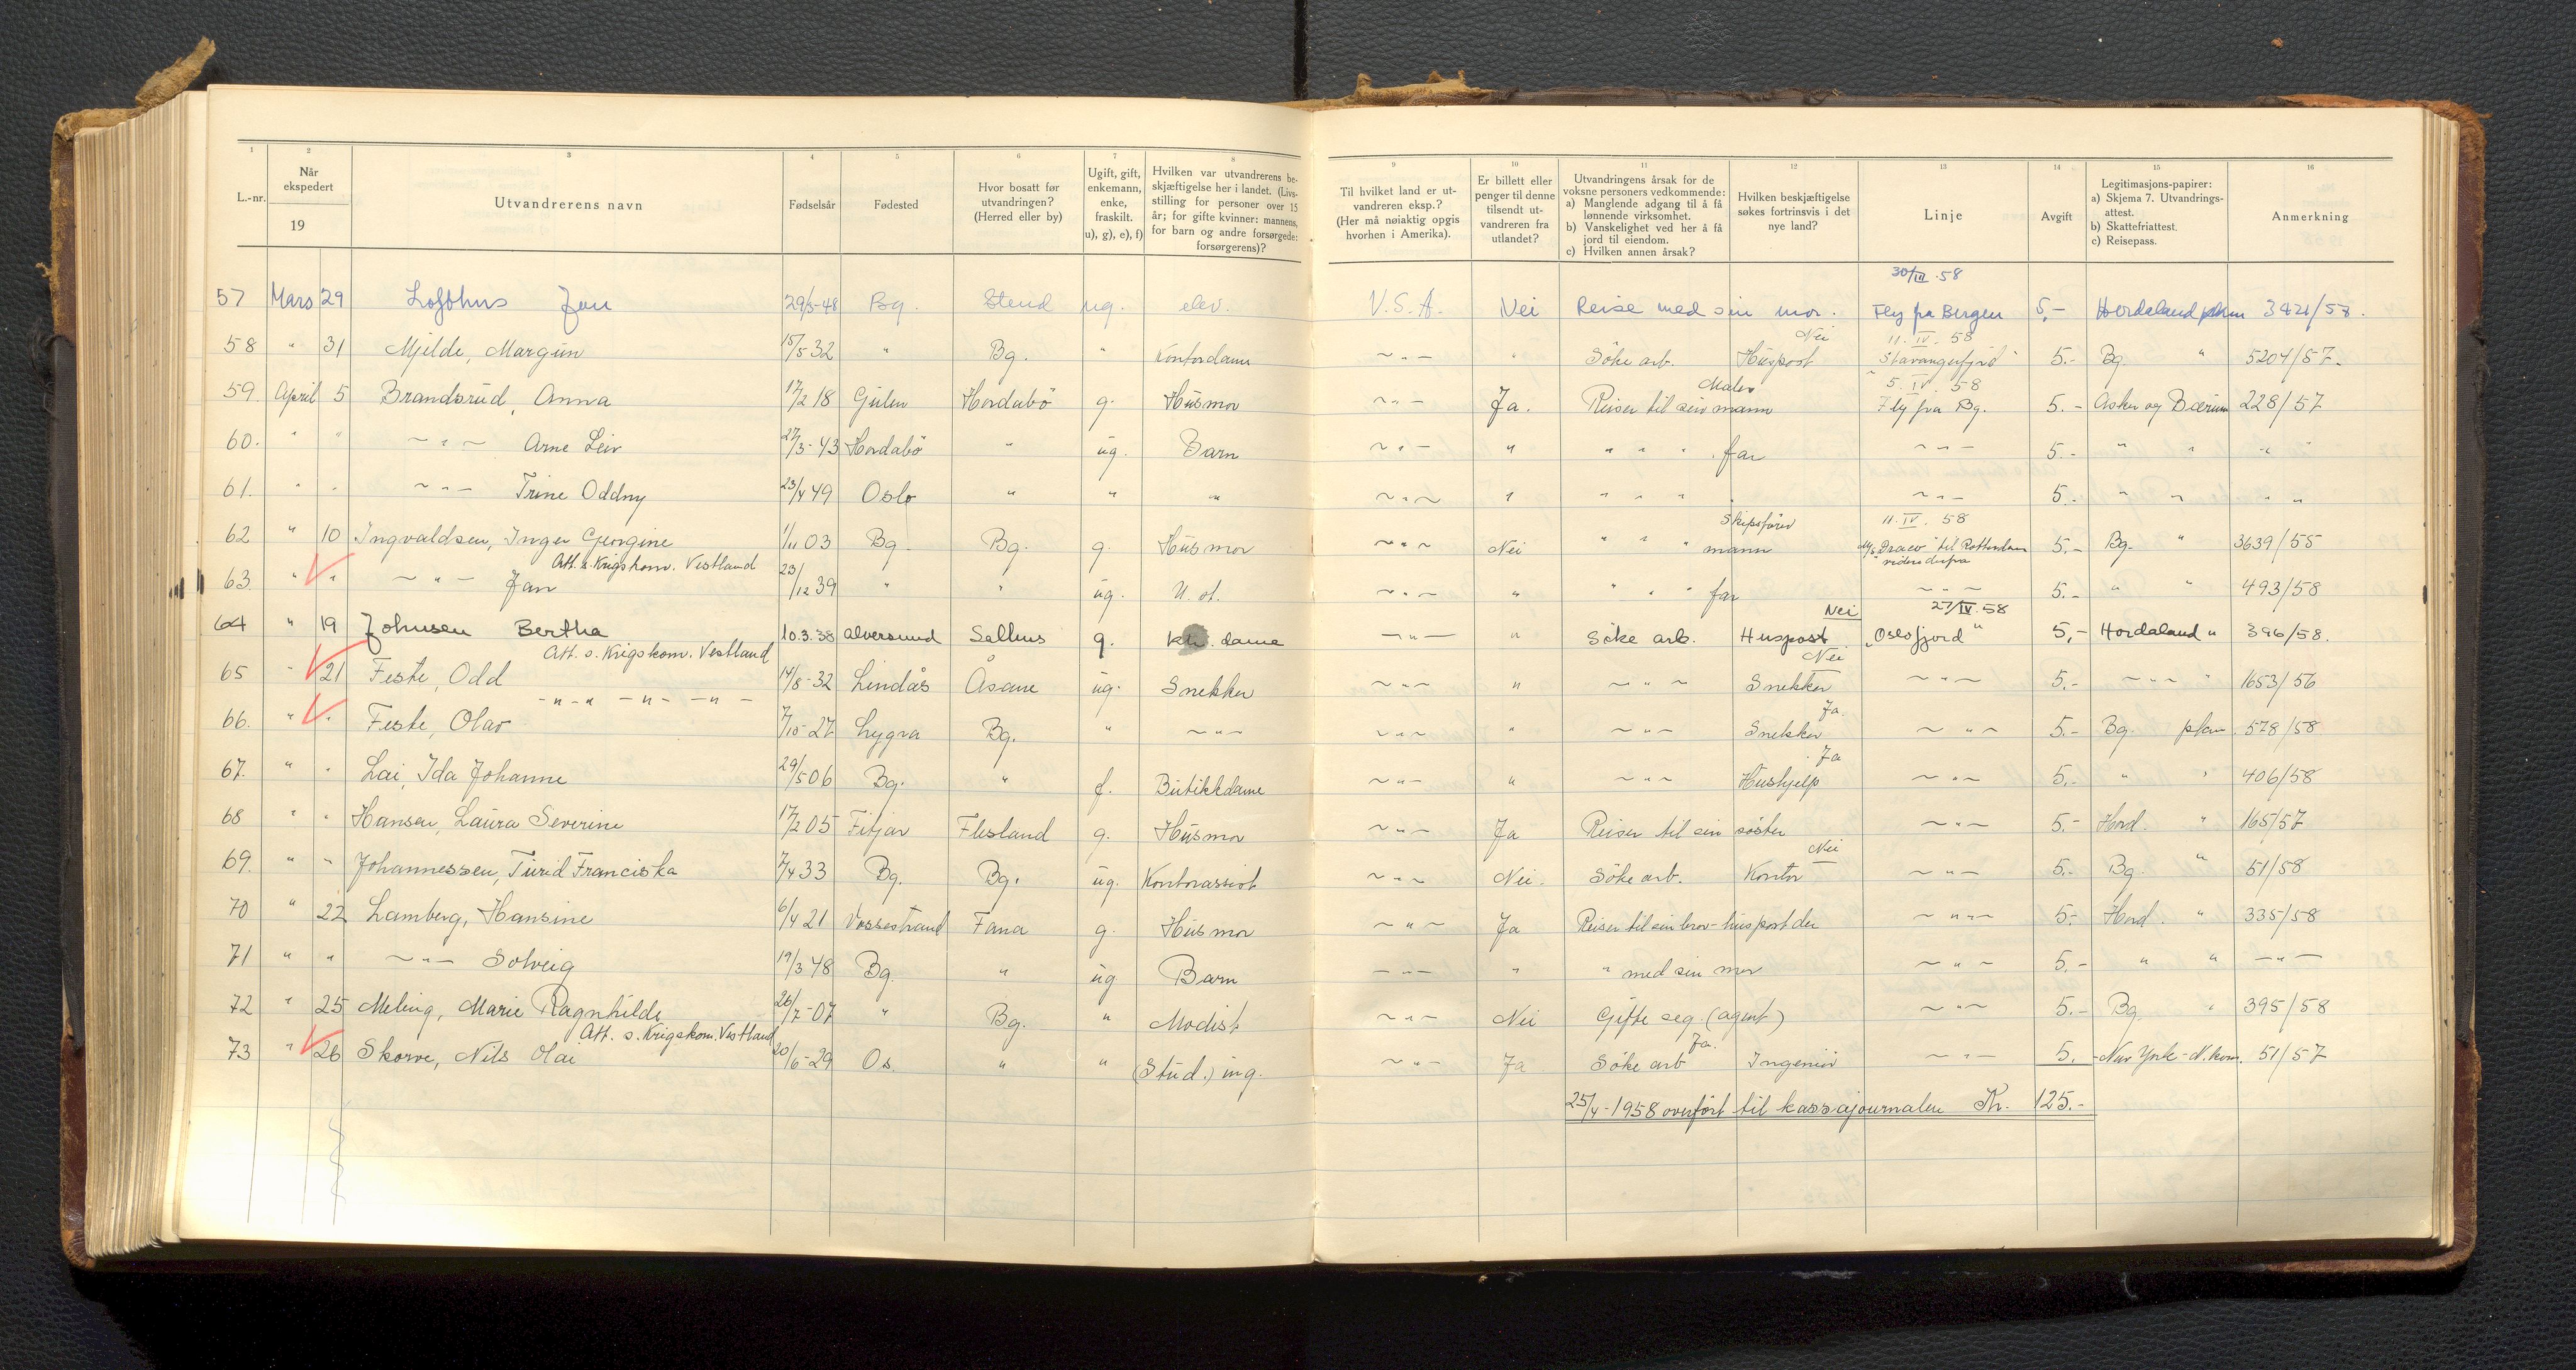 1 2 3 4 5 6 7 8 9 10 11 12 13 14 15 16
L.-nr. Når ekspedert 19 Utvandrerens navn Fødselsår Fødested Hvor bosatt før utvandringen? (Herred eller by) Ugift, gift, enkemann, enke, fraskilt. u), g), e), f) Hvilken var utvandrerens beskjæftigelse her i landet. (Livsstilling for personer over 15 år; for gifte kvinner: mannens, for barn og andre forsørgede: forsørgerens)?
Til hvilket land er utvandreren eksp.? (Her må nøiaktig opgis hvorhen i Amerika). Er billett eller penger til denne tilsendt utvandreren fra utlandet? Utvandringens årsak for de voksne personers vedkommende: a) Manglende adgang til å få lønnende virksomhet. b) Vanskelighet ved her å få jord til eiendom. c) Hvilken annen årsak? Hvilken beskjæftigelse søkes fortrinsvis i det nye land? Linje Avgift Legitimasjons-papirer: a) Skjema 7. Utvandringsattest. b) Skattefriattest. c) Reisepass. Anmerkning
30/IV. 58
57 Mars 29 Lofthus Jan 29/5-48 Bg. Stend ug. elev. U.S.A. Nei Reise med sin mor. Fly fra Bergen 5,- Hordaland pkm 3421/58.
Nei 11. IV. 58
58 " 31 Mjelde, Margun 15/5 32 " Bg. " Kontordame ~"~ " Söke arb. Huspost "Stavangerfjord" 5.- Bg. " 5204/57.
Maler 5. IV. 58
59. April 5 Brandsrud, Anna 17/2 18 Gulen Hordabö g. Husmor ~"~ Ja. Reiser til sin mann Fly fra Bg. 5.- Asker og Bærum 228/57
60. " " ~"~ Arne Leiv 27/3-43 Hordabö " ug. Barn ~"~ " " " " far ~"~ 5.- " " "
61. " " ~"~ Trine Oddny 23/4 49 Oslo " " " ~"~ " " " " " ~"~ 5.- " " " "
Skipsförer 11. IV. 58
62 " 10 Ingvaldsen, Inger Georgine 1/11 03 Bg. Bg. g. Husmor ~"~ Nei " " " mann M/S "Draco" til Rotterdam videre derfra 5.- Bg. " 3639/55
Att. s. Krigskom. Vestland
63. " " ~"~ Jan 23/12 39 " " ug. U. sk. ~"~ " " " " far ~"~ 5.- " " 493/58
Nei 27/IV. 58
64 " 19 Johnsen Bertha 10.3.38 Alversund Salhus g. dame ~"~ " Söke arb. Huspost "Oslofjord" 5,- Hordaland " 396/58.
Att. s. Krigskom. Vestland Nei
65 " 21 Feste, Odd 14/8-32 Lindås Åsane ug. Snekker ~"~ " ~"~ Snekker ~"~ 5.- ~"~ " 1653/56
-"-"-"-"- Ja.
66. " " Feste, Olav 7/10-27 Lygra Bg. " ~"~ ~"~ " ~"~ Snekker ~"~ 5.- Bg. pkm. 578/58
Ja
67. " " Lai, Ida Johanne 29/5 06 Bg. " f. Butikkdame ~"~ " ~"~ Hushjelp ~"~ 5.- " " 406/58
68 " " Hansen, Laura Severine 17/2 05 Fitjar Flesland g. Husmor ~"~ Ja Reiser til sin söster ~"~ 5.- Hord. " 165/57
Nei
69. " " Johannessen, Turid Franciska 7/4 33 Bg. Bg. ug. Kontorassist ~"~ Nei. Söke arb. Kontor ~"~ 5.- Bg. " 51/58
70 " 22 Lamberg, Hansine 6/4 21 Vossestrand Fana g. Husmor ~"~ Ja Reiser til sin bror - huspost der ~"~ 5.- Hord. " 335/58
71 " " ~"~ Solveig 19/3 48 Bg. " ug Barn ~"~ " " med sin mor ~"~ 5.- " " ~"~
72 " 25 Meling, Marie Ragnhilde 26/7-07 " Bg. " Modist ~"~ Nei Gifte seg. (agent) ~"~ 5.- Bg. " 395/58
Att. s. Krigskom. Vestland Ja.
73 " 26 Skorve, Nils Olai 20/6-29 Os. " " (Stud.) ing. ~"~ Ja Söke arb Ingeniör ~"~ 5.- New York - N. kom. 51/57
25/4-1958 overfört til kassajournalen Kr. 125.-